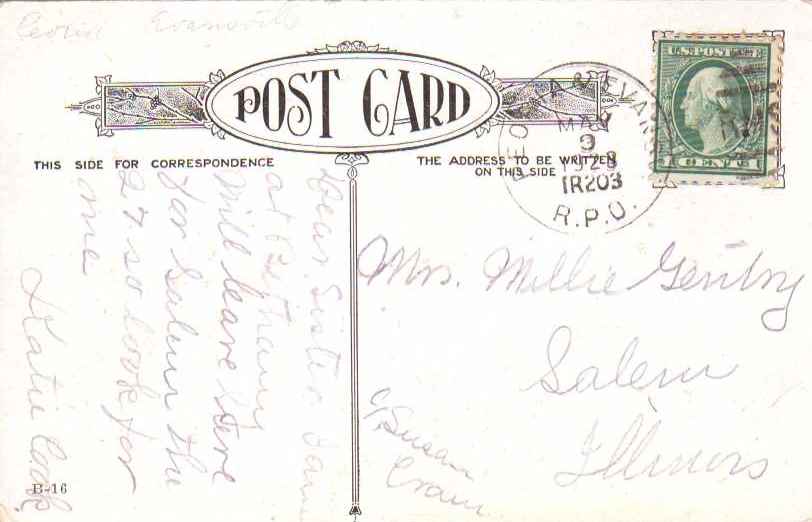 Peoria Evansville
POST CARD
U.S. POSTAGE
1 CENT 1
PEORIA & EVANS
MAY
9
1923
TR203
R.P.O.
THIS SIDE FOR CORRESPONDENCE
THE ADDRESS TO BE WRITTEN
ON THIS SIDE
Dear Sister I am
at Bethany
will leave here
for Salem the
27 so look for
me
Katie
Mrs. Millie Gentry
Salem
Illinois
c/ Susan
B-16